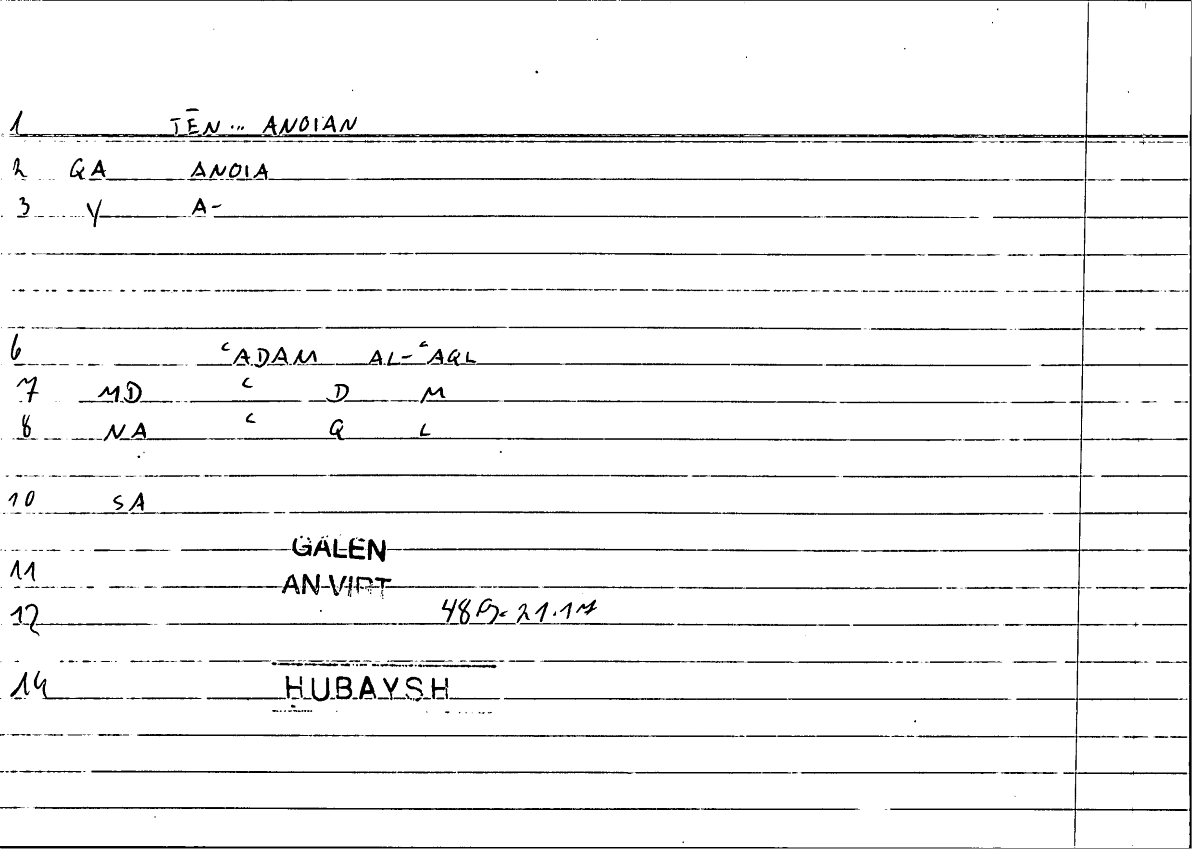 1 TĒN... ANOIAN
2 QA ANOIA
3 Y A-
6 ʿADAM AL-ʿAQL
7 MD ʿ D M
8 NA ʿ Q L
10 SA
GALEN
11 AN VIRT
12 21.14
14 HUBAYSH